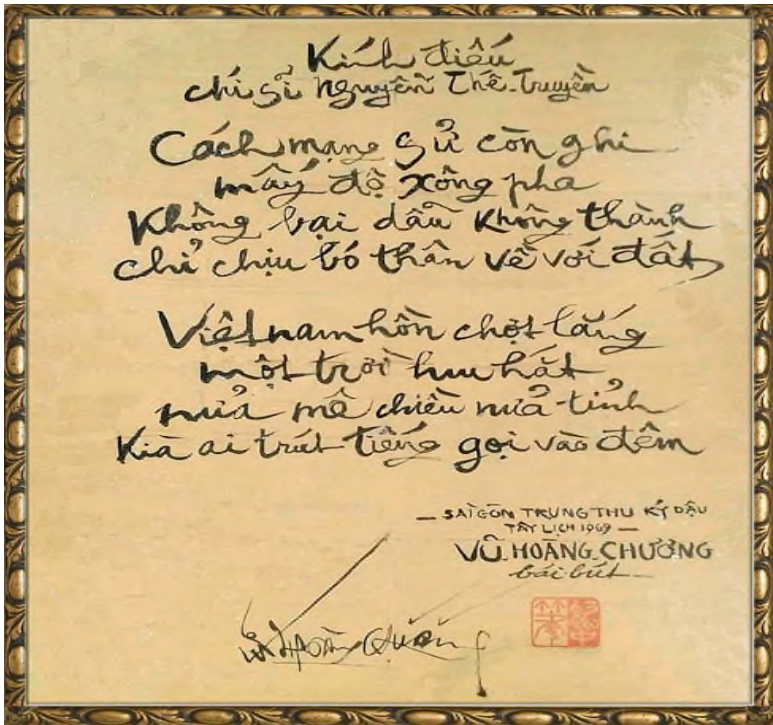 Kính điếu
chí sĩ Nguyễn Thế-Truyền
Cách mạng sử còn ghi
mấy độ xông pha
Không bại dẫu không thành
chỉ chịu bó thân về với đất
Việt nam hồn chợt lắng
một trời hiu hắt
nửa mê chiều nửa tỉnh
Kìa ai trút tiếng gọi vào đêm
— SÀIGÒN TRUNG THU KỶ DẬU
TÂY LỊCH 1969 —
VŨ HOÀNG CHƯƠNG
bái bút —
Vũ Hoàng Chương